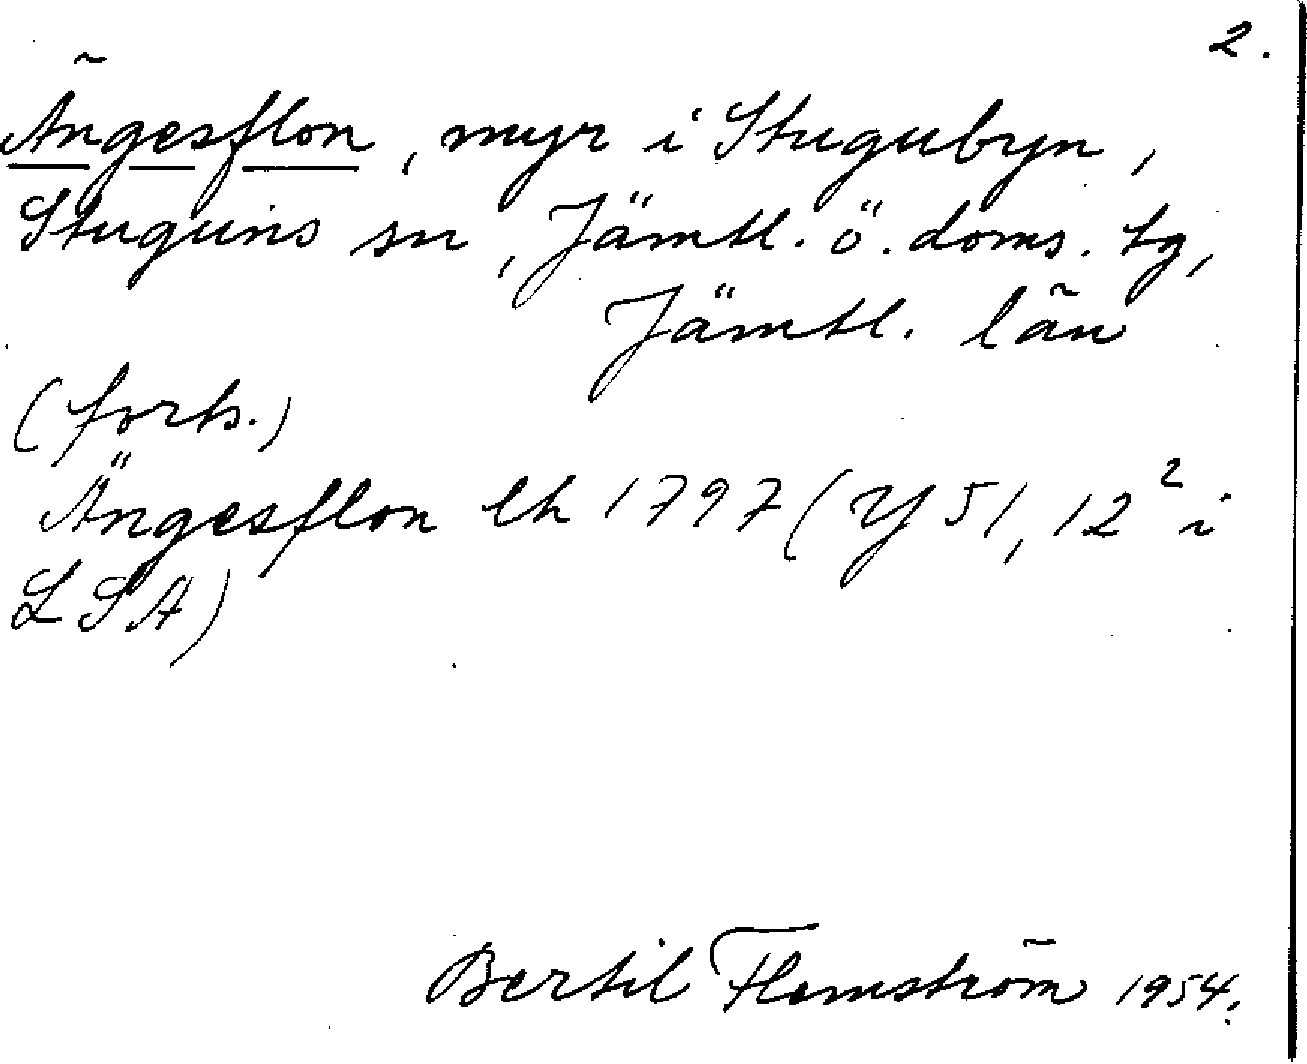 2.
Ängesflon, myr i Stugubyn,
Stuguns sn, Jämtl. ö. doms. tg,
Jämtl. län
(forts.)
Ängesflon lh 1797 (Y 51, 12² i
LSA)
Bertil Flemström 1954.